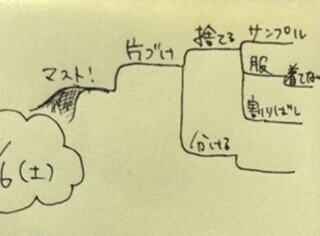 6(土)
マスト!
片づけ
捨てる
サンプル
服
着てな
割りばし
分ける